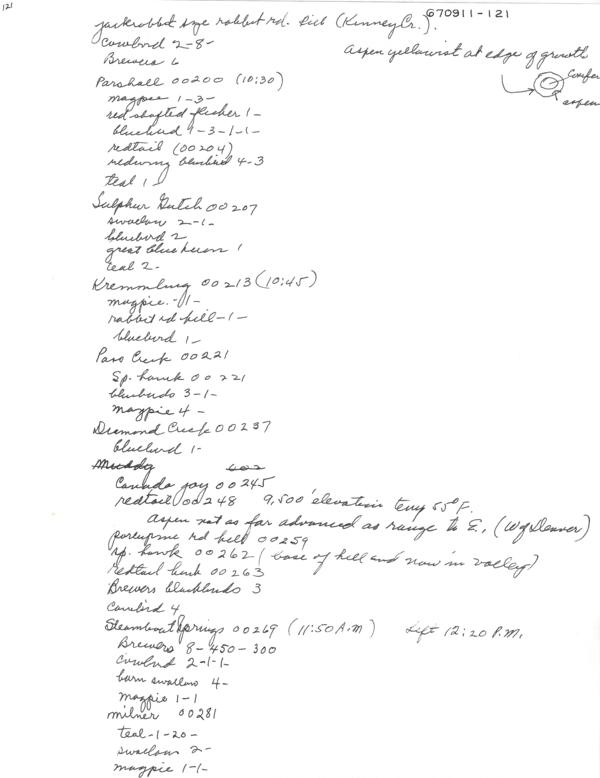 121
670911-121
jackrabbit size rabbit rd. kill (Kinney Cr.).
Cowbird 2-8-
Brewers 6
Aspen yellowist at edge of growth
Conifer
aspen
Parshall 00200 (10:30)
magpie 1-3-
red shafted flicker 1-
bluebird 9-3-1-1-
redtail (00204)
redwing blackbird 4-3
teal 1
Sulphur Gulch 00207
swallow 2-1-
bluebird 2
great blue heron 1
teal 2-
Kremmling 00213 (10:45)
magpie -1-
rabbit rd kill-1-
bluebird 1-
Pass Creek 00221
Sp. hawk 00221
bluebirds 3-1-
magpie 4-
Diamond Creek 00237
bluebird 1-
Muddy 602
Canada jay 00245
redtail 00248 9,500' elevation temp 55°F.
Aspen not as far advanced as range to E., (W of Denver)
porcupine rd kill 00259
sp. hawk 00262 (base of hill and now in valley)
redtail hawk 00263
Brewers blackbirds 3
Cowbird 4
Steamboat Springs 00269 (11:50 A.M) Left 12:20 P.M.
Brewers 8-450-300
Cowbird 2-1-1-
barn swallow 4-
magpie 1-1
milner 00281
teal-1-20-
swallow 2-
magpie 1-1-